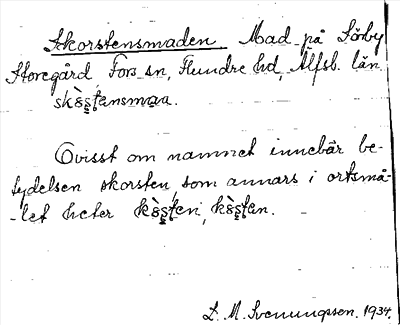 Skorstensmaden Mad på Sörby
Storegård, Fors sn, Flundre hd, Älfsb. län.
skòs̭tensmaa.
Ovisst om namnet innebär be-
tydelsen skorsten, som annars i ortsmå-
-let heter
L. M. Svenungsson. 1934.